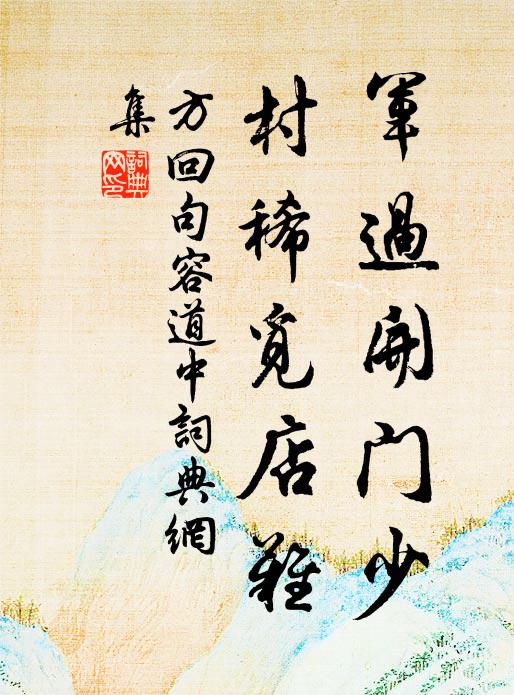 軍過開门少
村稀覓店難
方回句容道中詞典網
集
詞典
网印